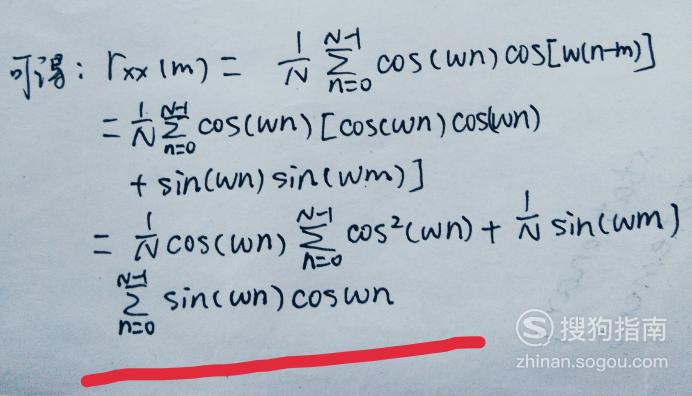 可得: rxx(m) = 1/N ∑_{n=0}^{N-1} cos(wn) cos[w(n-m)]
= 1/N ∑_{n=0}^{N-1} cos(wn) [cos(wn) cos(wn)
+ sin(wn) sin(wm)]
= 1/N cos(wn) ∑_{n=0}^{N-1} cos²(wn) + 1/N sin(wm)
∑_{n=0}^{N-1} sin(wn) coswn
搜狗指南
zhinan.sogou.com